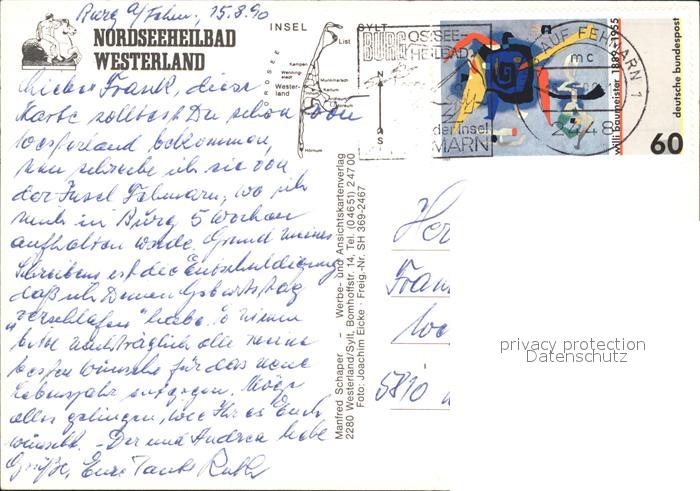 Burg a/Fehm., 15.8.90
NORDSEEHEILBAD
WESTERLAND
INSEL SYLT
List
Kampen
Wenning-
stedt
Munkmarsch
Wester-
land
Keitum
Hörnum
NORDSEE
N
S
BURG OSTSEE-
HEILBAD
der Insel
MARN
AUF FEHMARN 1
mc
2448
willi baumeister 1889-1955
deutsche bundespost
60
Lieber Frank, diese
Karte solltest Du schon von
Westerland bekommen,
nun schreibe ich sie von
der Insel Fehmarn, wo ich
mich in Burg 5 Wochen
aufhalten werde. Grund meines
Schreibens ist die Entschuldigung,
daß ich Deinen Geburtstag
"verschlafen" habe.
bitte nachträglich alle meine
besten Wünsche für das neue
Lebensjahr entgegen. Möge
alles gelingen, wie Ihr es Euch
wünscht. - Dir und Andrea liebe
Grüße, Eure Tante Ruth
Manfred Schaper Werbe- und Ansichtskartenverlag
2280 Westerland/Sylt, Bomhoffstr. 14, Tel. (04651) 24700
Foto: Joachim Eicke · Freig.-Nr. SH 369-2467
Her
Fran
5810
privacy protection
Datenschutz